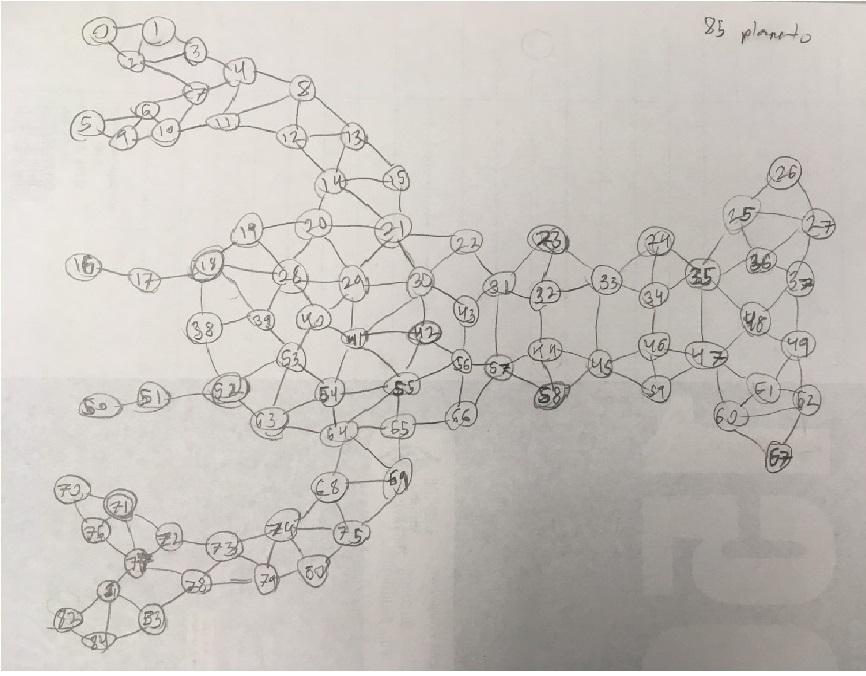 85 planets
0
1
2
3
4
5
6
7
8
9
10
11
12
13
14
15
16
17
18
19
20
21
22
23
24
25
26
27
28
29
30
31
32
33
34
35
36
37
38
39
40
41
42
43
44
45
46
47
48
49
50
51
52
53
54
55
56
57
58
59
60
61
62
63
64
65
66
67
68
69
70
71
72
73
74
75
76
77
78
79
80
81
82
83
84